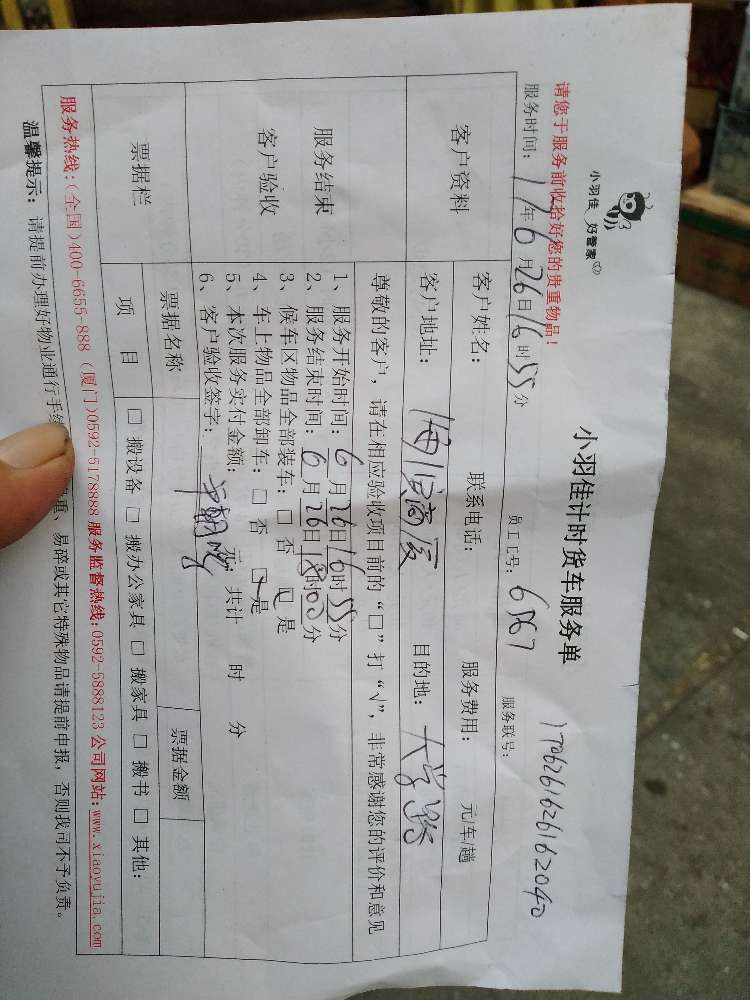 小羽佳 好管家
小羽佳计时货车服务单
请您于服务前收拾好您的贵重物品!
服务时间: 17年6月26日16时55分 员工工号: 6867 服务联号:
客户资料
客户姓名: 联系电话: 服务费用: 元/车/趟
客户地址: 目的地: 大学路
服务结束
客户验收
尊敬的客户, 请在相应验收项目前的“□”打“√”, 非常感谢您的评价和意见
1、服务开始时间: 6月26日16时55分
2、服务结束时间: 6月26日18时00分
3、候车区物品全部装车: □ 否 □ 是
4、车上物品全部卸车: □ 否 □ 是
5、本次服务实付金额: 元 共计 时 分
6、客户验收签字:
票据栏
票据名称 票据金额
项 目 □ 搬设备 □ 搬办公家具 □ 搬家具 □ 搬书 □ 其他:
服务热线:(全国)400-6655-888 (厦门)0592-5178888 服务监督热线:0592-5888123 公司网站:www.xiaoyujia.com
温馨提示: 请提前办理好物业通行手续 重、易碎或其它特殊物品请提前申报, 否则我司不予负责。